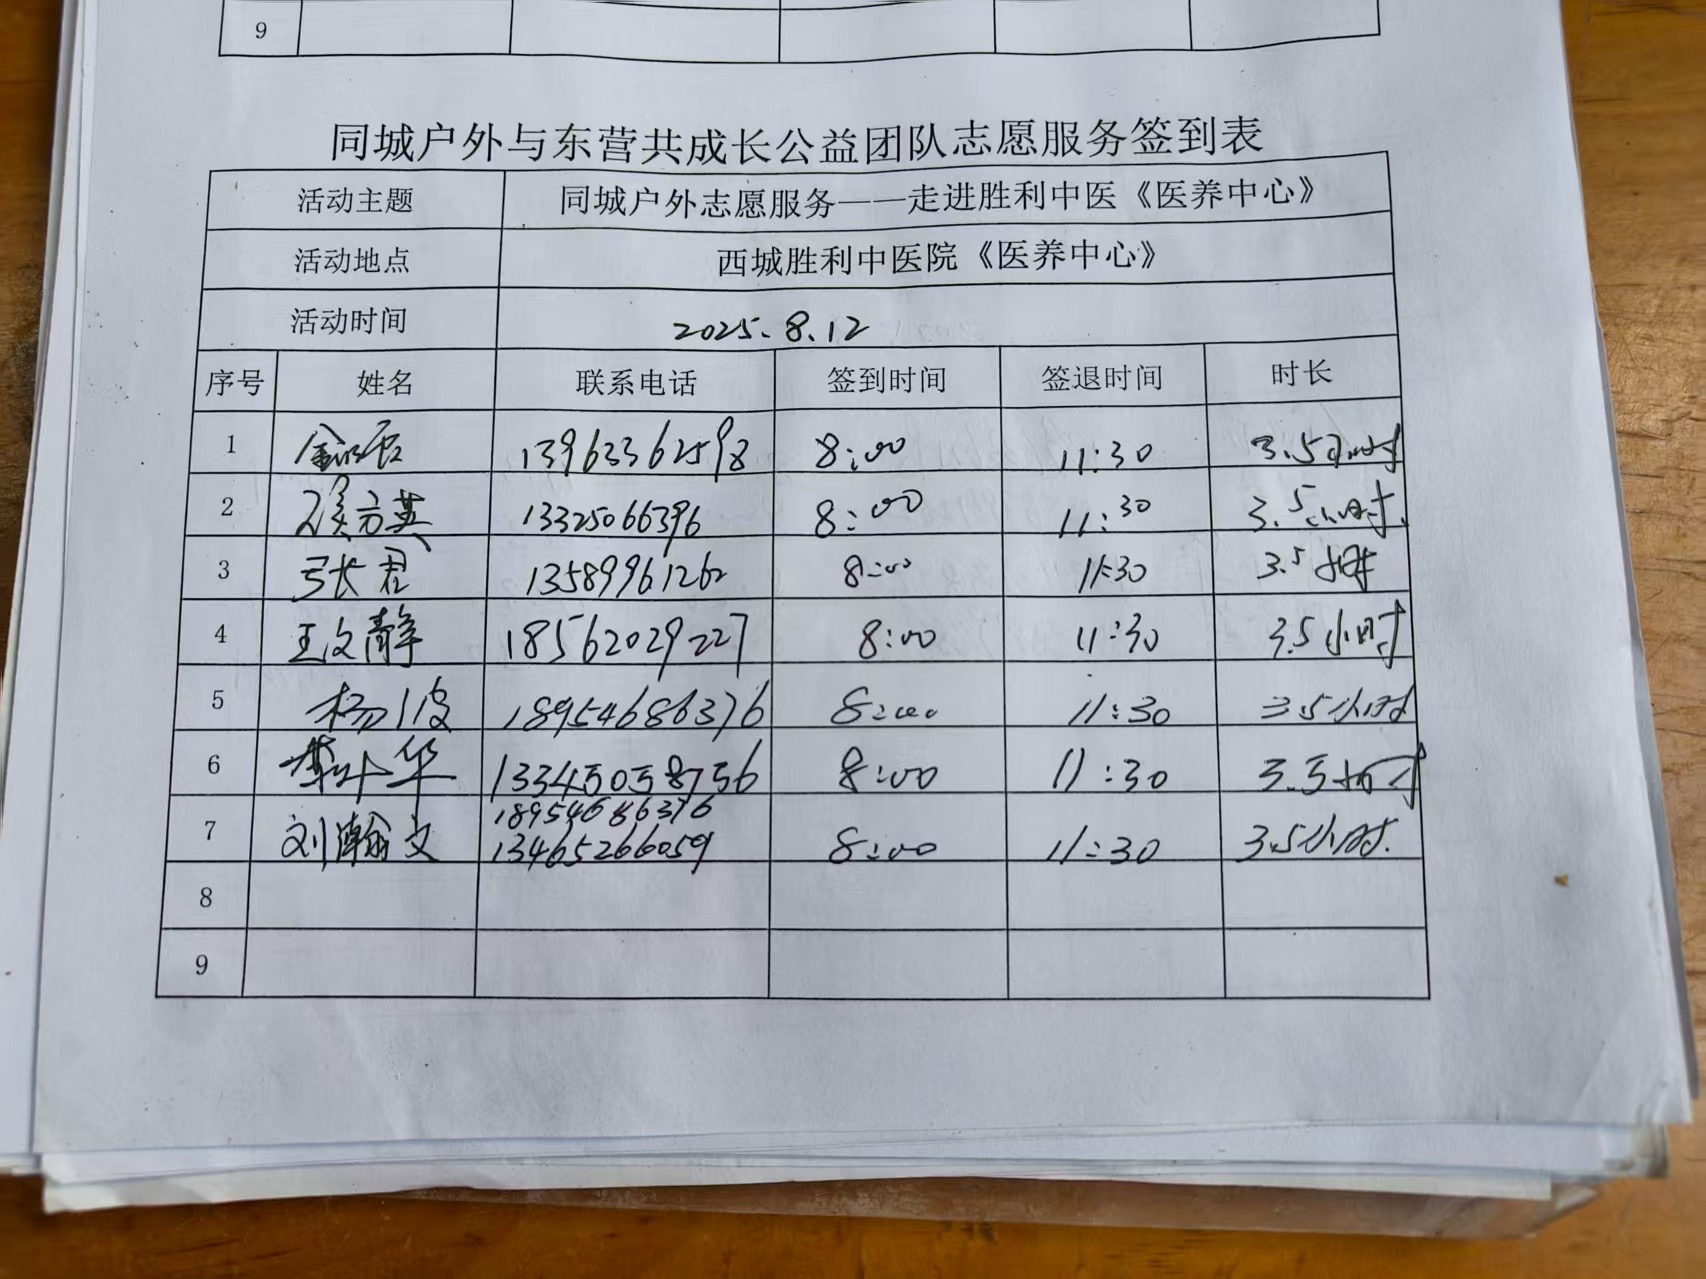 9
同城户外与东营共成长公益团队志愿服务签到表
活动主题 同城户外志愿服务——走进胜利中医《医养中心》
活动地点 西城胜利中医院《医养中心》
活动时间 2025.8.12
序号 姓名 联系电话 签到时间 签退时间 时长
1 13963362598 8:00 11:30 3.5小时
2 方英 13325066396 8:00 11:30 3.5小时
3 张君 13589961262 8:00 11:30 3.5小时
4 王文静 18562029227 8:00 11:30 3.5小时
5 杨 18954686376 8:00 11:30 3.5小时
6 华 8:00 11:30 3.5小时
18954686376
7 刘瀚文 13465266059 8:00 11:30 3.5小时.
8
9